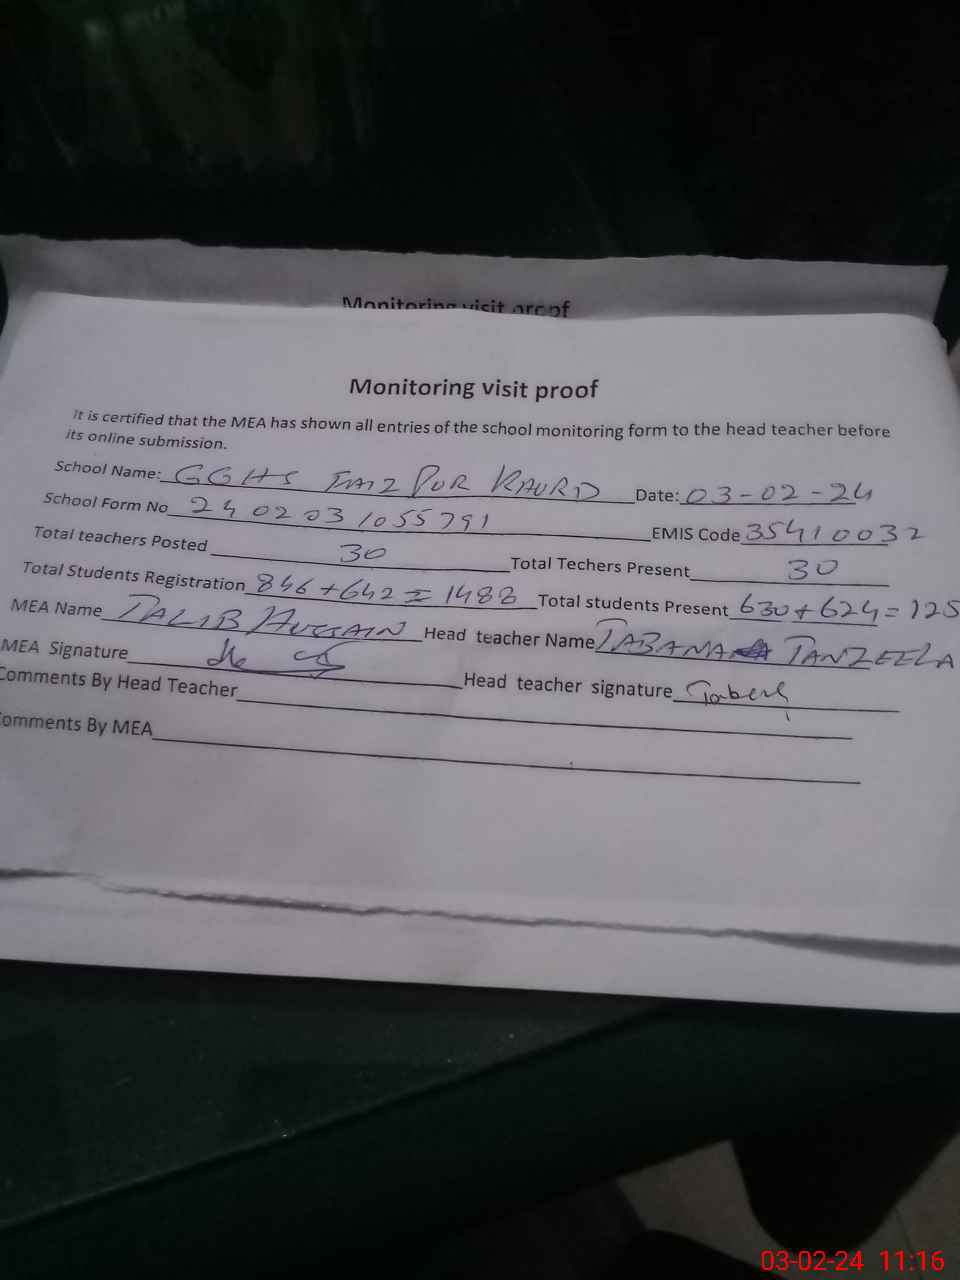 Monitoring visit proof
Monitoring visit proof
It is certified that the MEA has shown all entries of the school monitoring form to the head teacher before
its online submission.
School Name: GGHS FAIZ PUR KHURD Date: 03-02-24
School Form No 2402031055791 EMIS Code 35410032
Total teachers Posted 30 Total Techers Present 30
Total Students Registration 846+642=1488 Total students Present 630+624=125
MEA Name TALIB HUSSAIN Head teacher Name TABANA TANZEELA
MEA Signature Head teacher signature
Comments By Head Teacher
omments By MEA
03-02-24 11:16